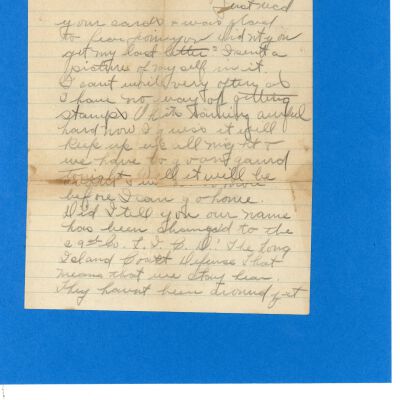 Just recd
your cards & was glad
to hear from you didnt you
get my last letter? I sent a
picture of my self in it.
I cant write very often as
I have no way of getting
stamps Its raining awful
hard now I guess it will
keep up we all might &
we have to go on guard
tonight well it will be
before I can go home.
Did I tell you our name
has been changed to the
Co. L. I. C. D. The Long
Island Coast Defense That
means that we stay hear.
They havnt been around yet